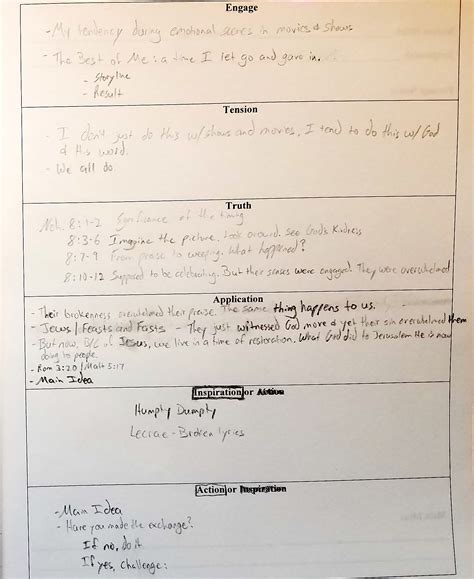 Engage
- My tendency during emotional scenes in movies & shows
- The Best of Me: a time I let go and gave in.
- Storyline
- Result
Tension
- I don't just do this w/shows and movies, I tend to do this w/ God
& His word.
- We all do
Truth
Neh. 8:1-2 Significance of the timing
8:3-6 Imagine the picture, look around, see God's Kindness
8:7-9 From praise to weeping. What happened?
8:10-12 Supposed to be celebrating. But their senses were engaged. They were overwhelmed
Application
- Their brokenness overwhelmed their praise. The same thing happens to us.
- Jews/Feasts and Fasts - They just witnessed God more & yet their sin overwhelmed them
- But now, B/C of Jesus, we live in a time of restoration. What God did to Jerusalem He is now
doing to people.
- Rom 3:20 / Matt 5:17
- Main Idea
Inspiration or Action
Humpty Dumpty
Lecrae - Broken lyrics
Action or Inspiration
- Main Idea
- Have you made the exchange?
If no, do it
If yes, challenge: